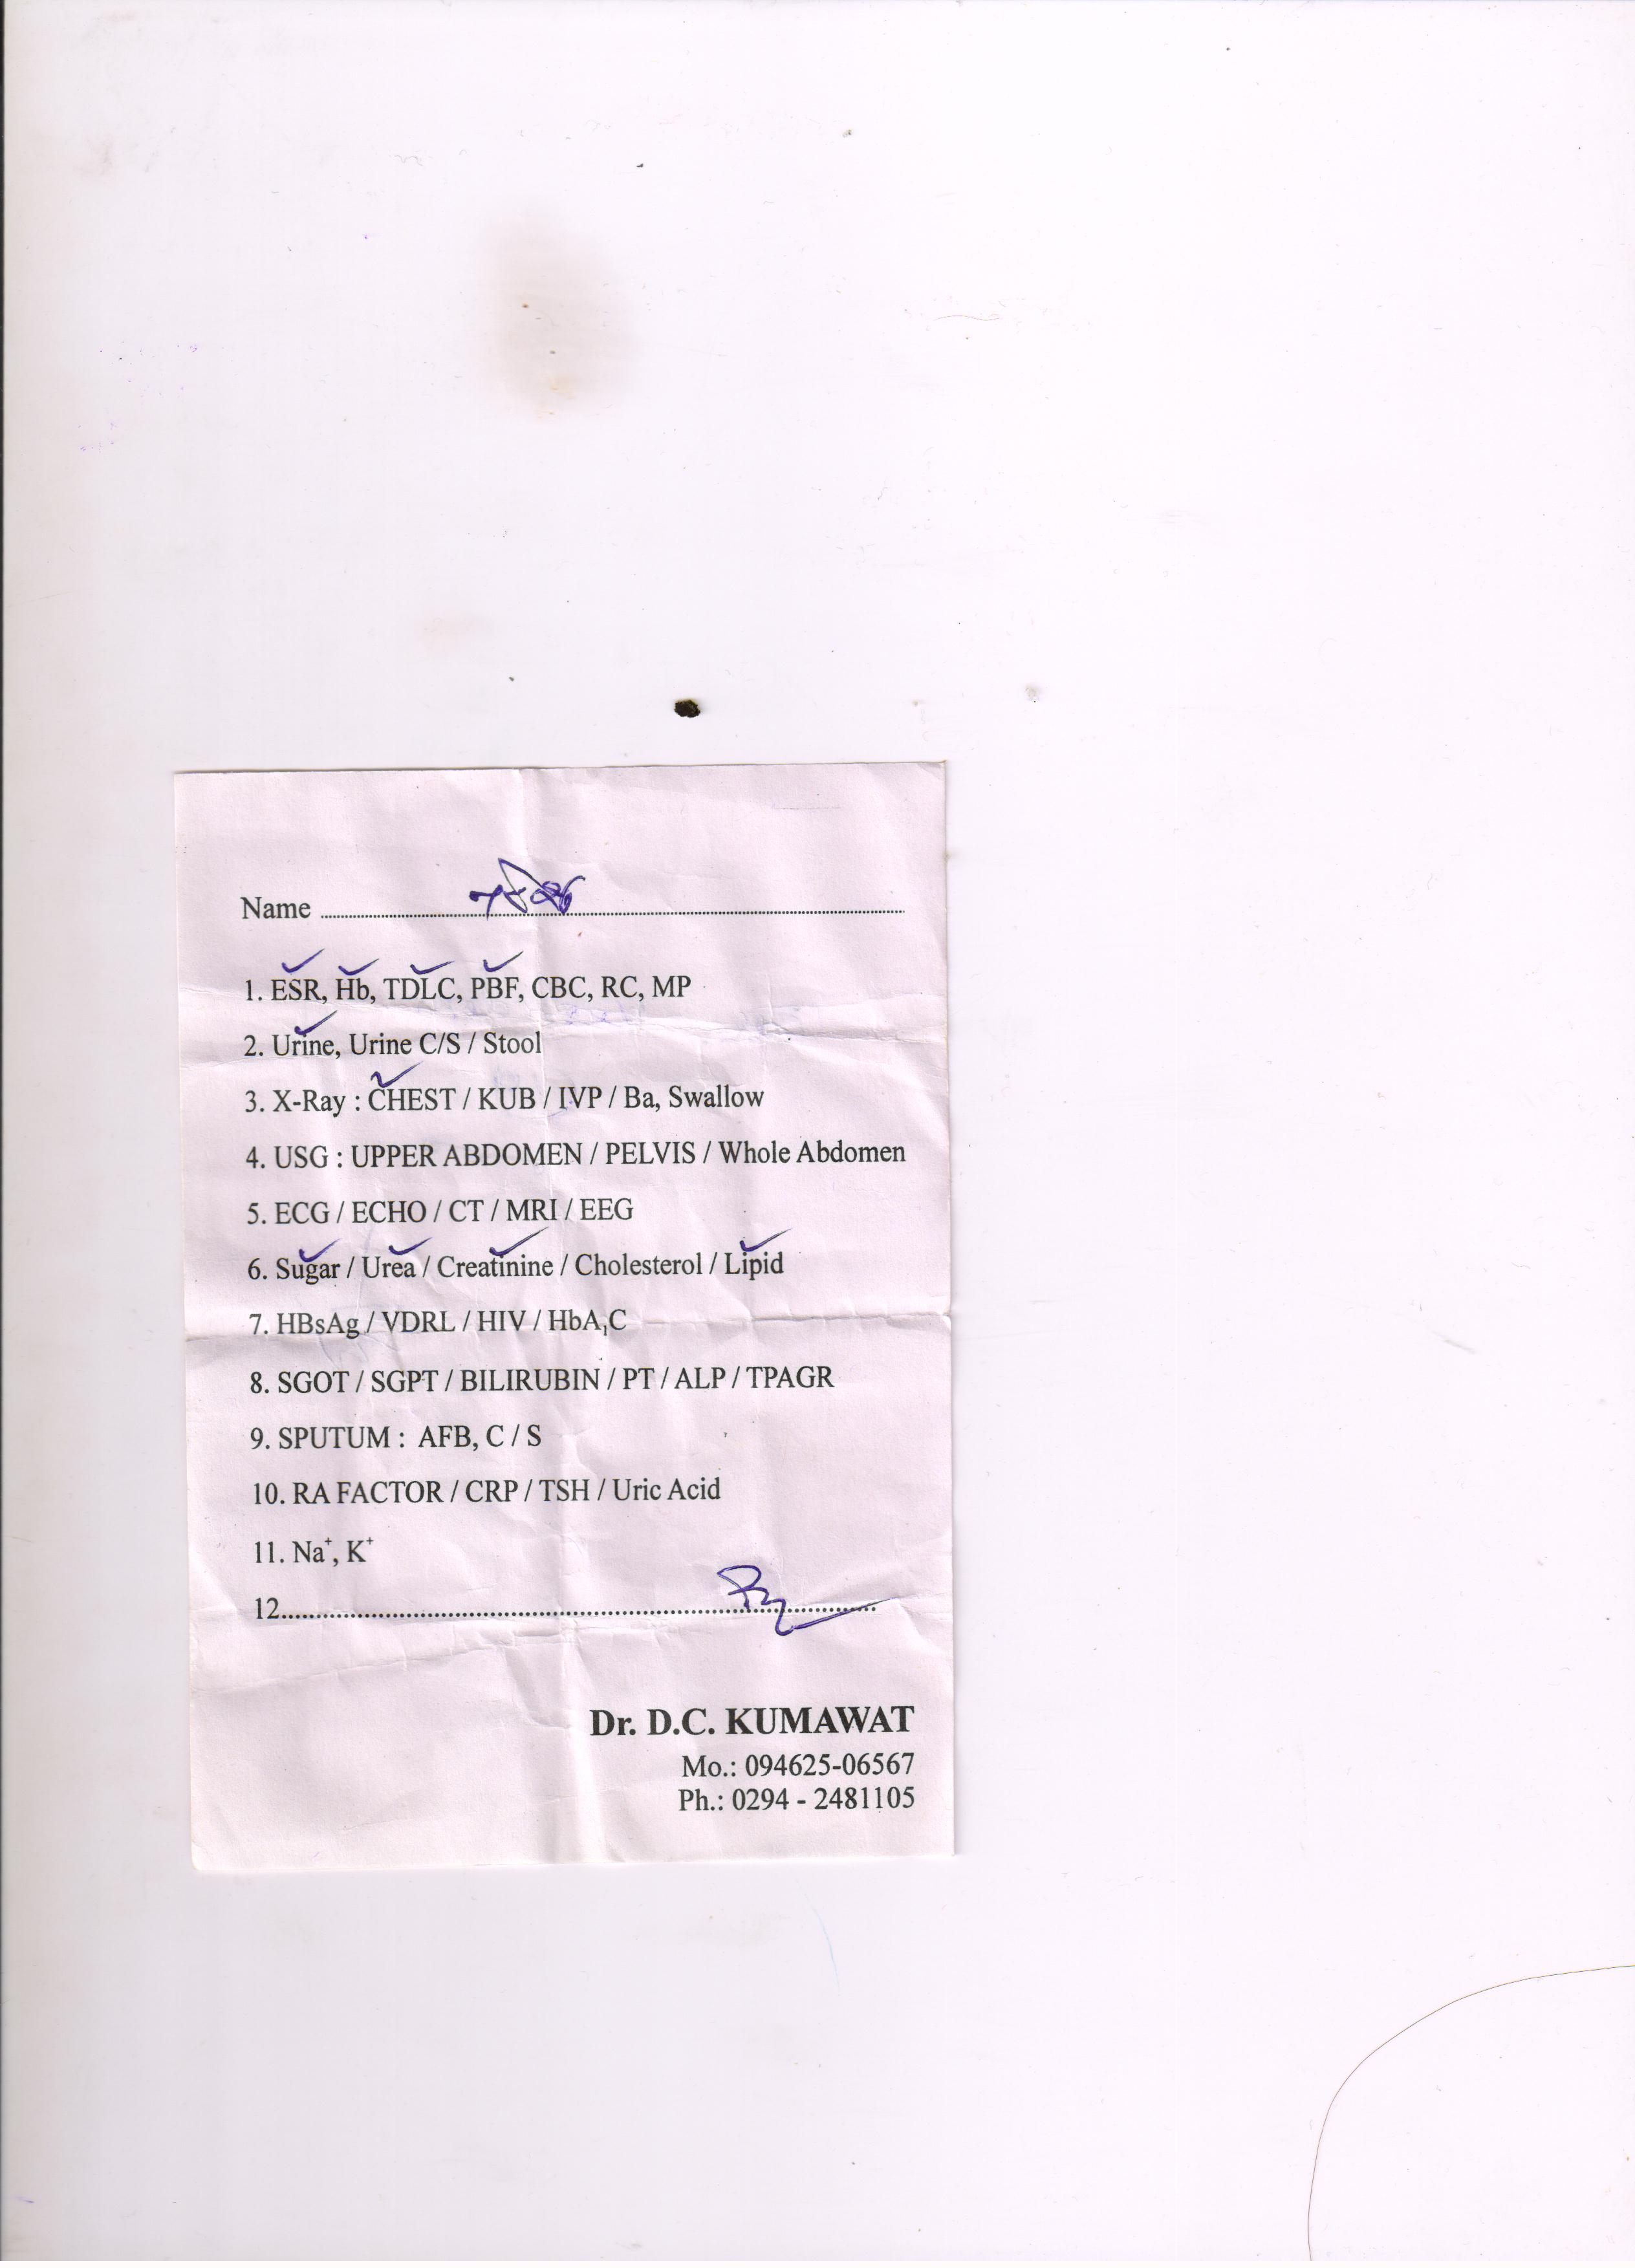 Name
1. ESR, Hb, TDLC, PBF, CBC, RC, MP
2. Urine, Urine C/S / Stool
3. X-Ray : CHEST / KUB / IVP / Ba, Swallow
4. USG : UPPER ABDOMEN / PELVIS / Whole Abdomen
5. ECG / ECHO / CT / MRI / EEG
6. Sugar / Urea / Creatinine / Cholesterol / Lipid
7. HBsAg / VDRL / HIV / HbA₁C
8. SGOT / SGPT / BILIRUBIN / PT / ALP / TPAGR
9. SPUTUM : AFB, C / S
10. RA FACTOR / CRP / TSH / Uric Acid
11. Na⁺, K⁺
12
Dr. D.C. KUMAWAT
Mo.: 094625-06567
Ph.: 0294 - 2481105